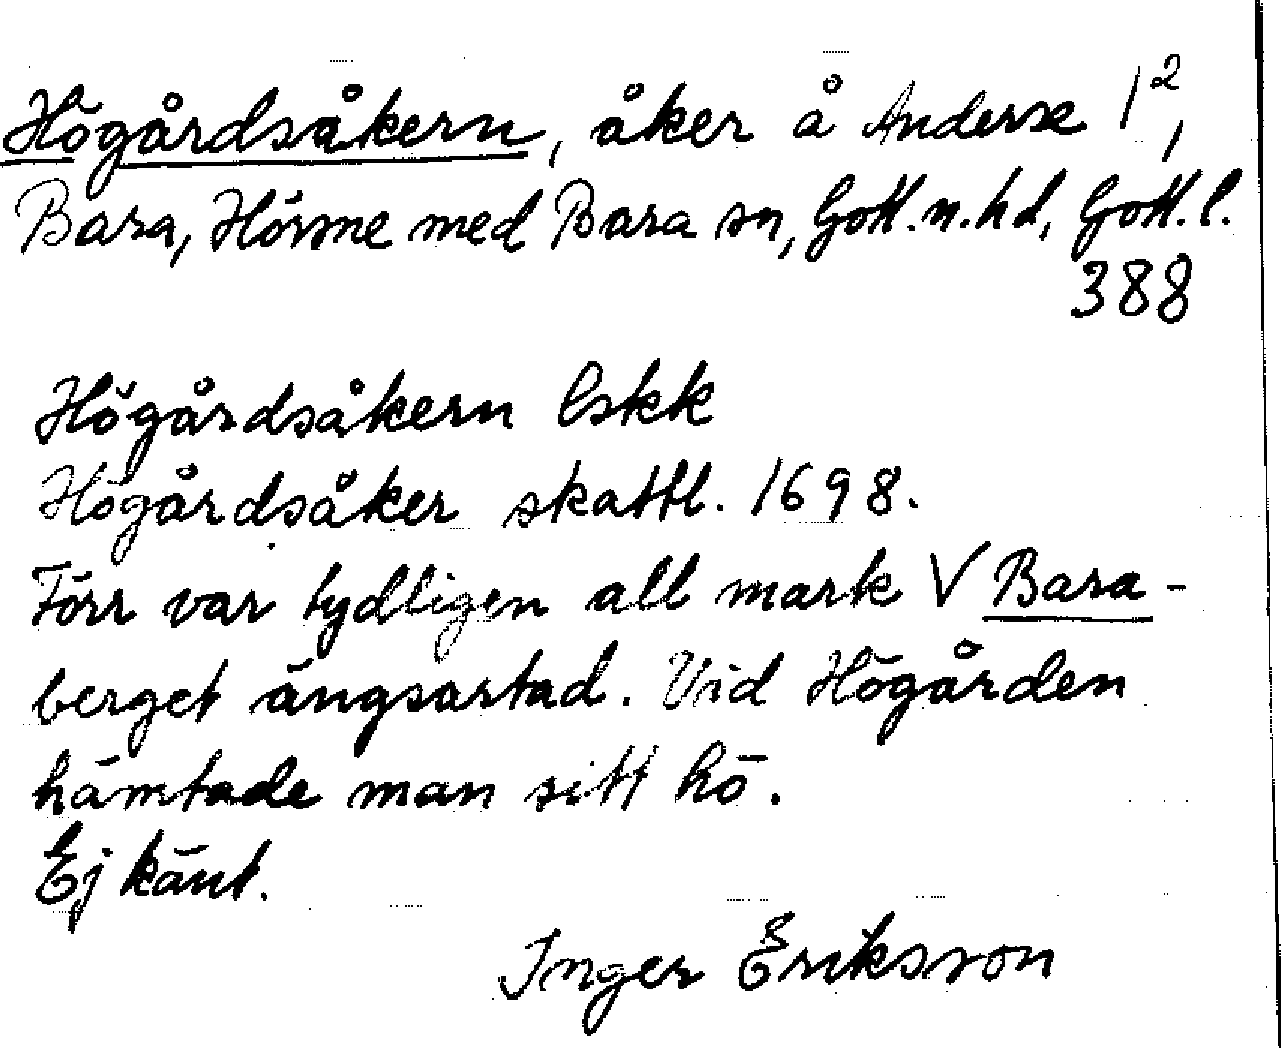 Högårdsåkern, åker å Anderse 1²,
Bara, Hörsne med Bara sn, Gotl. n. hd, Gotl. l.
388
Högårdsåkern Eskk
Högårdsåker skattl. 1698.
Förr var tydligen all mark V Bara-
berget ängsartad. Vid Högården
hämtade man sitt hö.
Ej känt.
Inger Eriksson